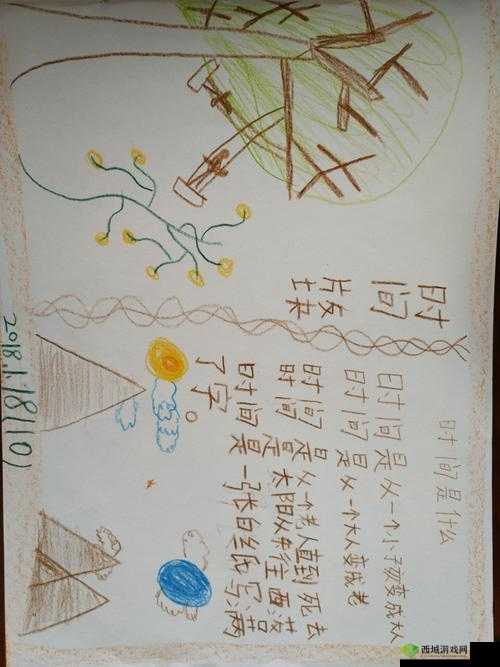 时间
时间是什么
时间是从一个小孩变成大人
时间是从一个大人变成老
时间是从一个老人直到死去
时间是太阳从东往西落
时间是一张白纸写满
了字
2018.1.18(10)
西城游戏网